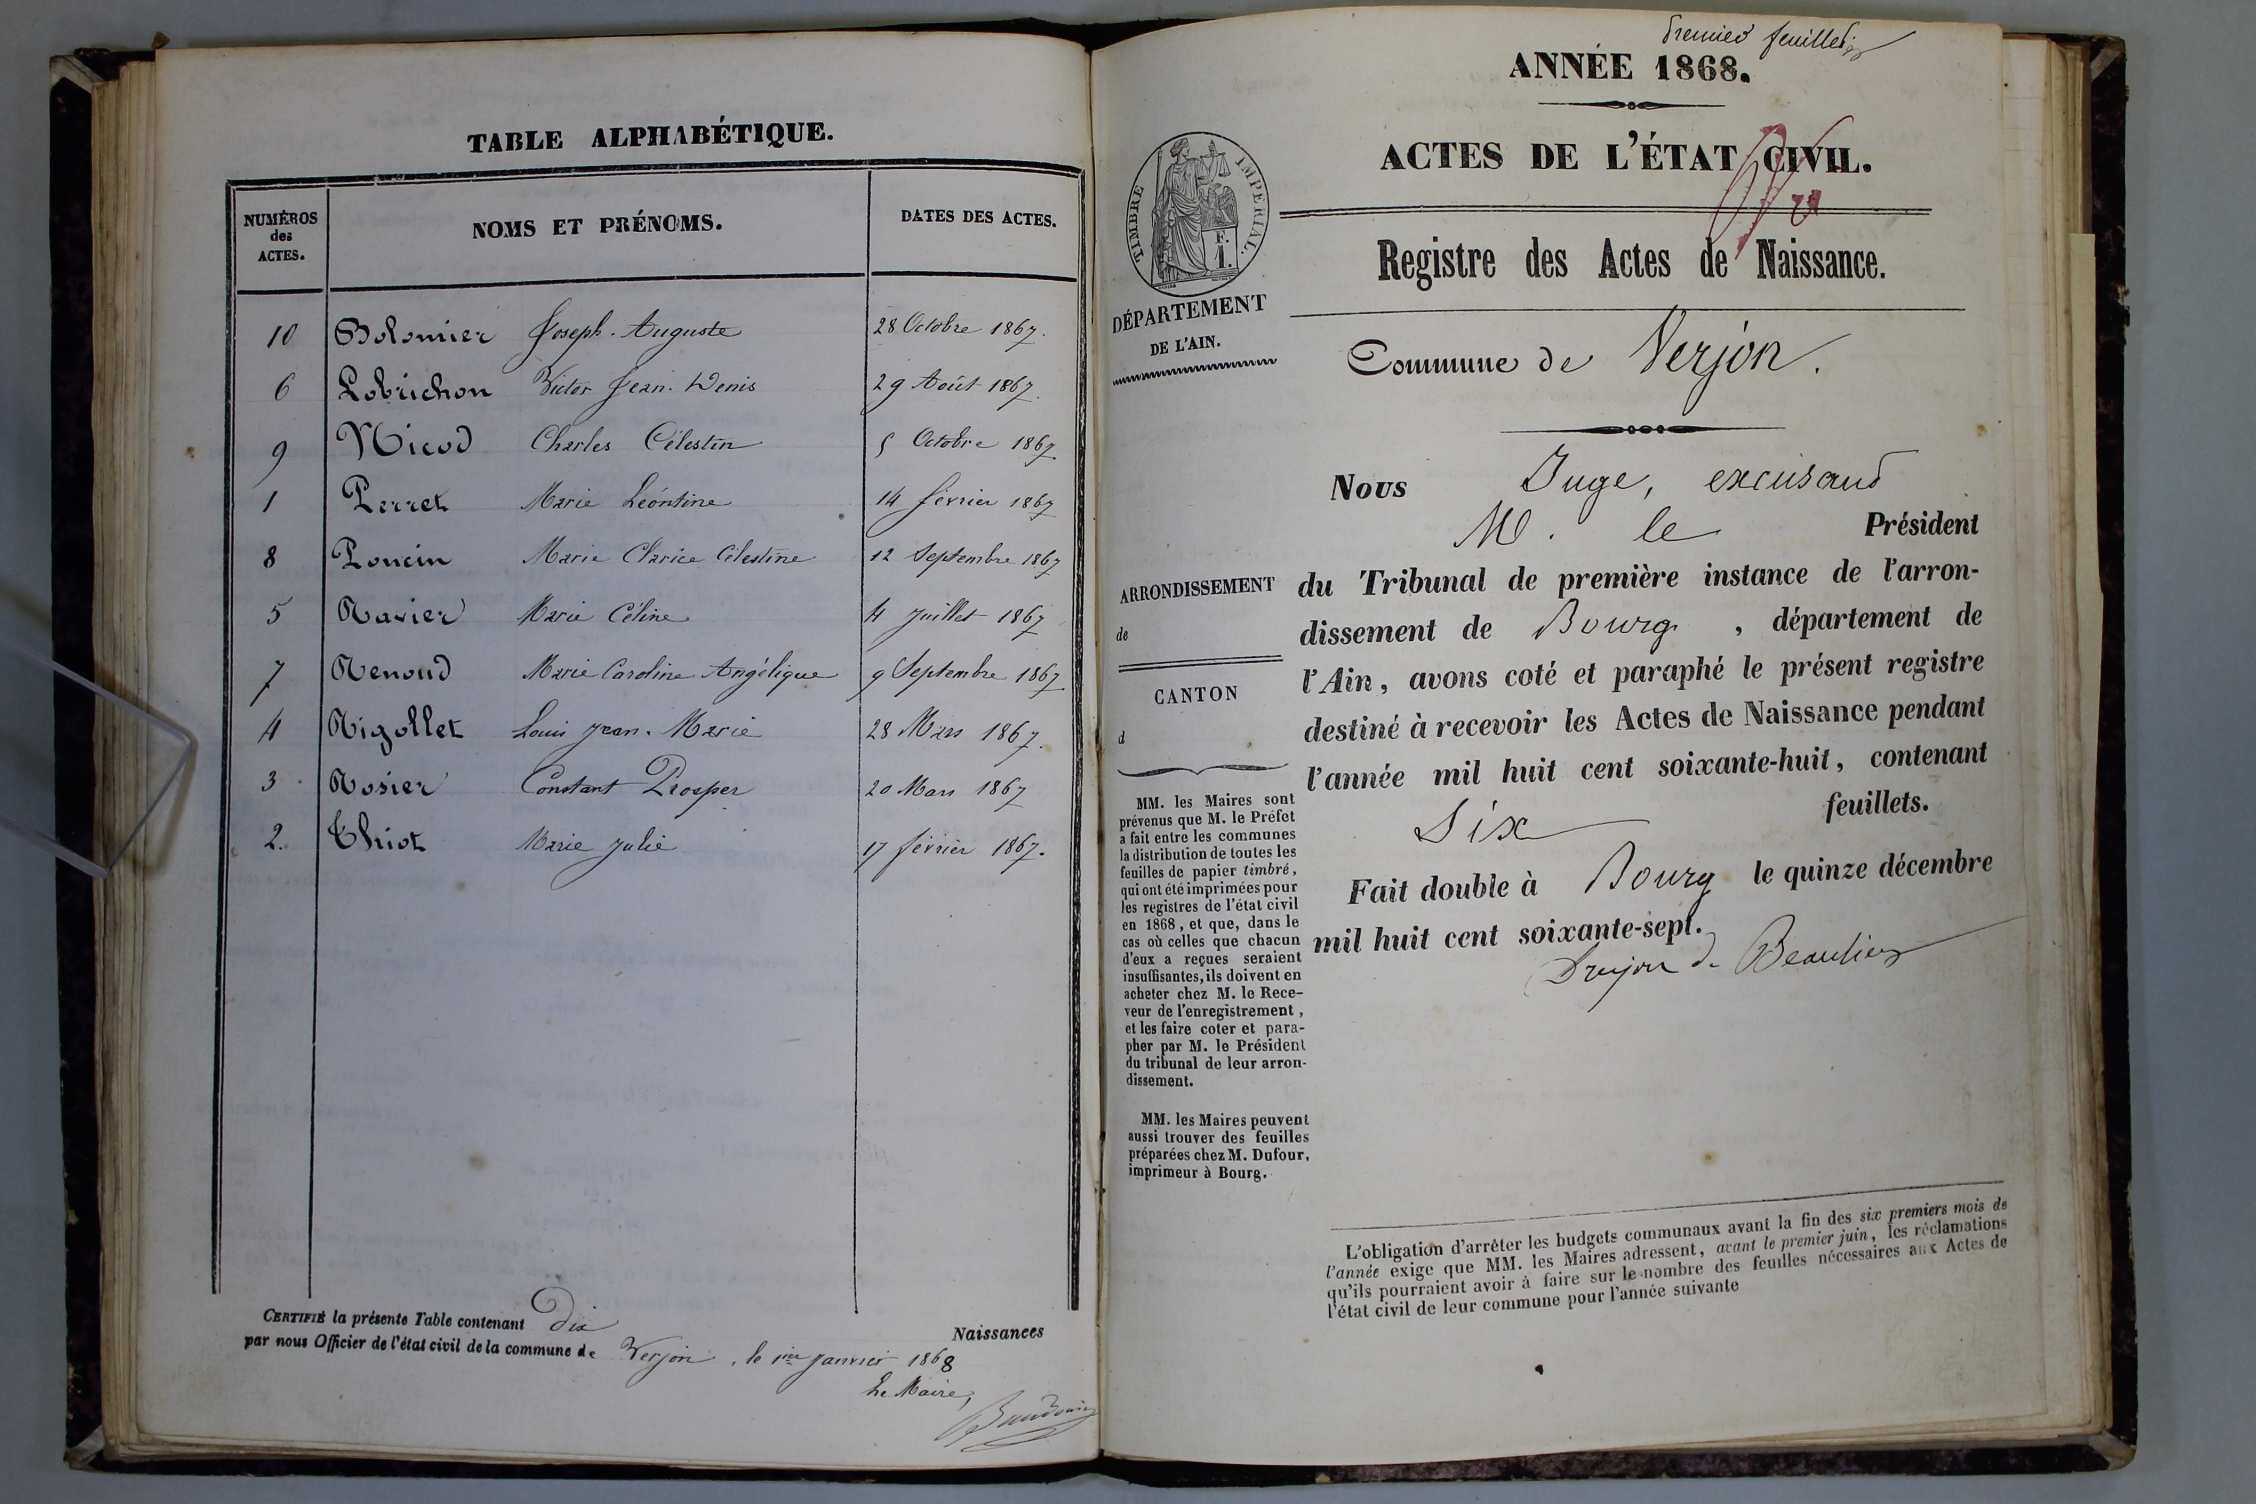 TABLE ALPHABÉTIQUE.
NUMÉROS des ACTES. NOMS ET PRÉNOMS. DATES DES ACTES.
10 Bolomier Joseph-Auguste 28 Octobre 1867.
6 Lobrichon Victor Jean-Denis 29 Août 1867.
9 Nicod Charles Célestin 5 Octobre 1867
1 Perret Marie Léontine 14 février 1867
8 Poncin Marie Clarice Célestine 12 Septembre 1867
5 Ravier Marie Céline 4 juillet 1867
7 Renoud Marie Caroline Angélique 9 Septembre 1867
4 Rigollet Louis Jean-Marie 28 Mars 1867.
3 Rosier Constant Prosper 20 Mars 1867
2. Thiot Marie Julie 17 février 1867.
CERTIFIÉ la présente Table contenant Dix Naissances
par nous Officier de l'état civil de la commune de Verjon, le 1er janvier 1868
Le Maire,
Premier feuillet
ANNÉE 1868.
ACTES DE L'ÉTAT CIVIL.
TIMBRE IMPÉRIAL.
F.
1.
Registre des Actes de Naissance.
DÉPARTEMENT
DE L'AIN.
Commune de Verjon.
Nous Juge, excusant
M. le Président
ARRONDISSEMENT
de
CANTON
d
du Tribunal de première instance de l'arron-
dissement de Bourg, département de
l'Ain, avons coté et paraphé le présent registre
destiné à recevoir les Actes de Naissance pendant
l'année mil huit cent soixante-huit, contenant
Six feuillets.
Fait double à Bourg le quinze décembre
mil huit cent soixante-sept.
Drujon de Beaulieu
MM. les Maires sont
prévenus que M. le Préfet
a fait entre les communes
la distribution de toutes les
feuilles de papier timbré,
qui ont été imprimées pour
les registres de l'état civil
en 1868, et que, dans le
cas où celles que chacun
d'eux a reçues seraient
insuffisantes, ils doivent en
acheter chez M. le Rece-
veur de l'enregistrement,
et les faire coter et para-
pher par M. le Président
du tribunal de leur arron-
dissement.
MM. les Maires peuvent
aussi trouver des feuilles
préparées chez M. Dufour,
imprimeur à Bourg.
L'obligation d'arrêter les budgets communaux avant la fin des six premiers mois de
l'année exige que MM. les Maires adressent, avant le premier juin, les réclamations
qu'ils pourraient avoir à faire sur le nombre des feuilles nécessaires aux Actes de
l'état civil de leur commune pour l'année suivante